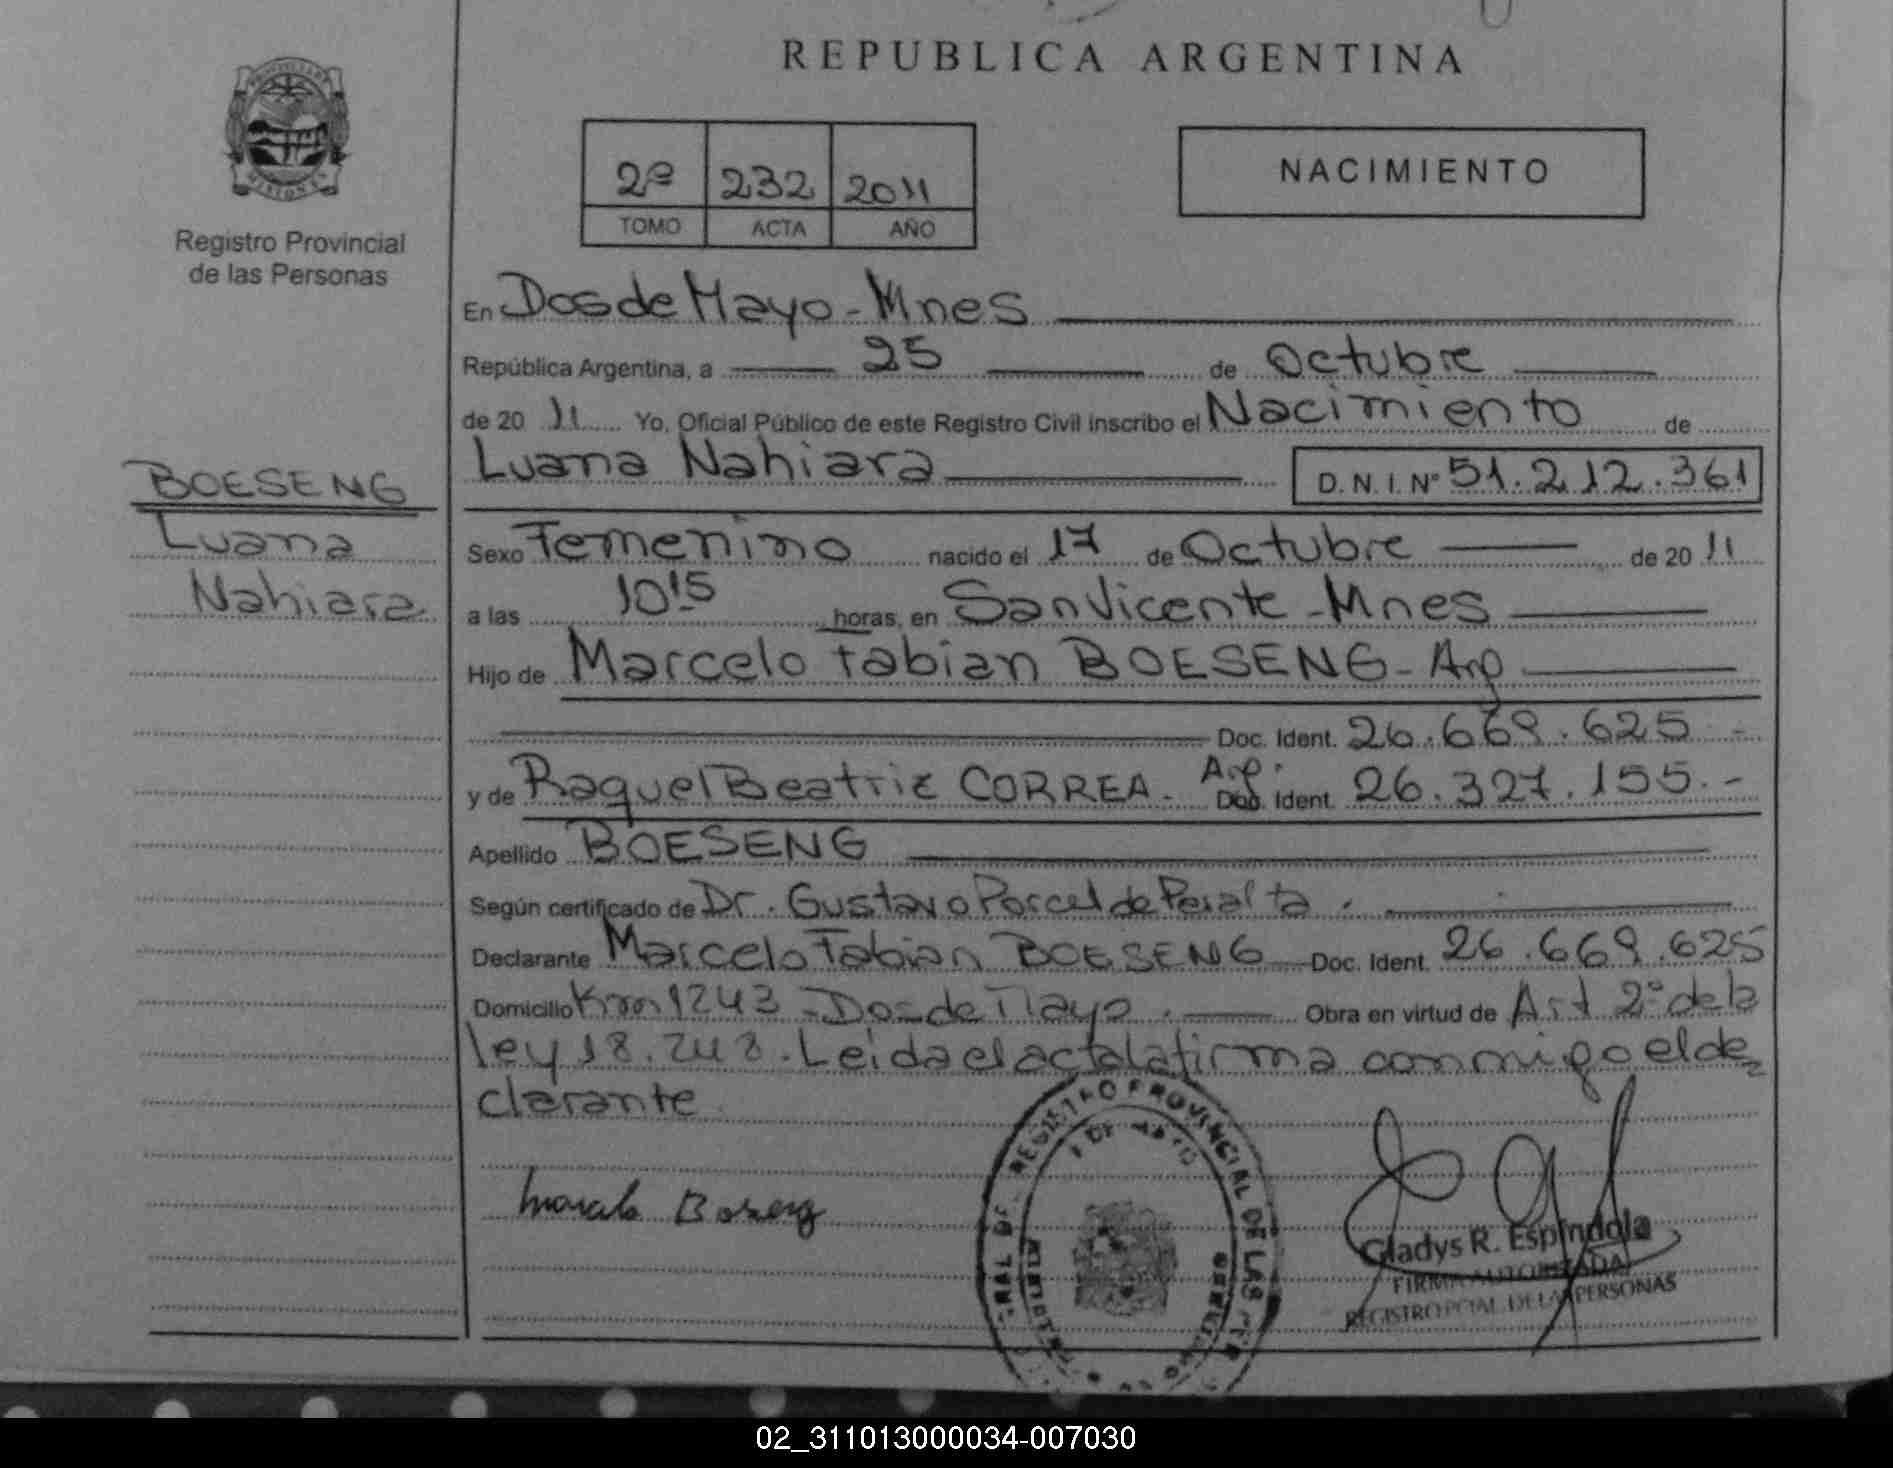 REPUBLICA ARGENTINA
PROVINCIA DE MISIONES
Registro Provincial
de las Personas
2º 232 2011
TOMO ACTA AÑO
NACIMIENTO
En Dos de Mayo - Mnes
República Argentina, a 25 de Octubre
de 20 11 Yo, Oficial Público de este Registro Civil inscribo el Nacimiento de
Luana Nahiara D.N.I. Nº 51.212.361
BOESENG
Luana
Nahiara
Sexo Femenino nacido el 17 de Octubre de 20 11
a las 10 15 horas, en San Vicente - Mnes
Hijo de Marcelo Fabian BOESENG - Arg
Doc. Ident. 26.669.625 -
y de Raquel Beatriz CORREA - Arg. Doc. Ident. 26.327.155.-
Apellido BOESENG
Según certificado de Dr. Gustavo Porcel de Peralta.
Declarante Marcelo Fabian BOESENG Doc. Ident. 26.669.625
Domicilio Km 1243 - Dos de Mayo. Obra en virtud de Art 2º de la
ley 18.248. Leida el acta la firma conmigo el de
clarante
REGISTRO PROVINCIAL DE LAS
2 DE MAYO
MISIONES
Marcelo Boseng
Gladys R. Espíndola
FIRMA AUTORIZADA
REGISTRO PCIAL. DE LAS PERSONAS
02_311013000034-007030